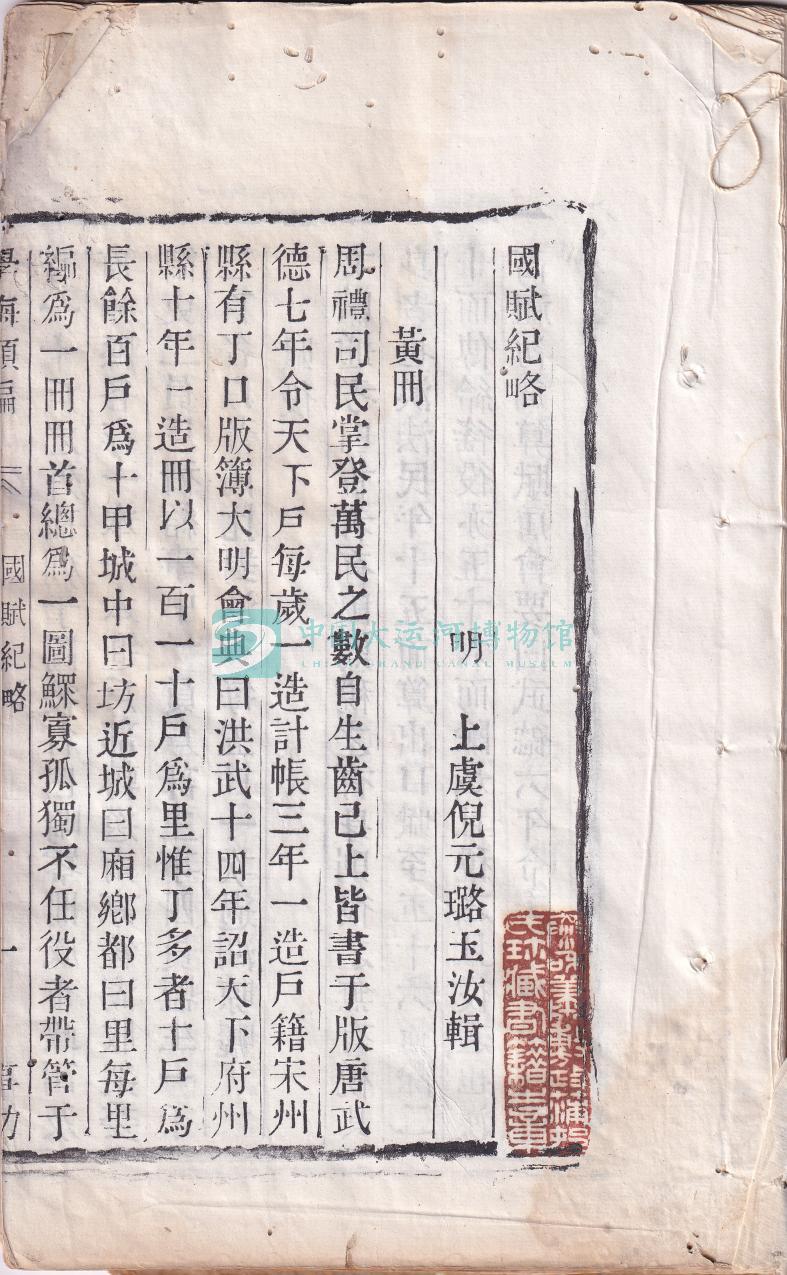 國賦紀略
明　上虞倪元璐玉汝輯
黃冊
周禮司民掌登萬民之數自生齒已上皆書于版唐武
德七年令天下戶每歲一造計帳三年一造戶籍宋州
縣有丁口版簿大明會典曰洪武十四年詔天下府州
縣十年一造冊以一百一十戶爲里惟丁多者十戶爲
長餘百戶爲十甲城中曰坊近城曰廂鄉都曰里每里
編爲一冊冊首總爲一圖鰥寡孤獨不任役者帶管于
學海類編
國賦紀略
一
中国大运河博物馆
CHINA GRAND CANAL MUSEUM